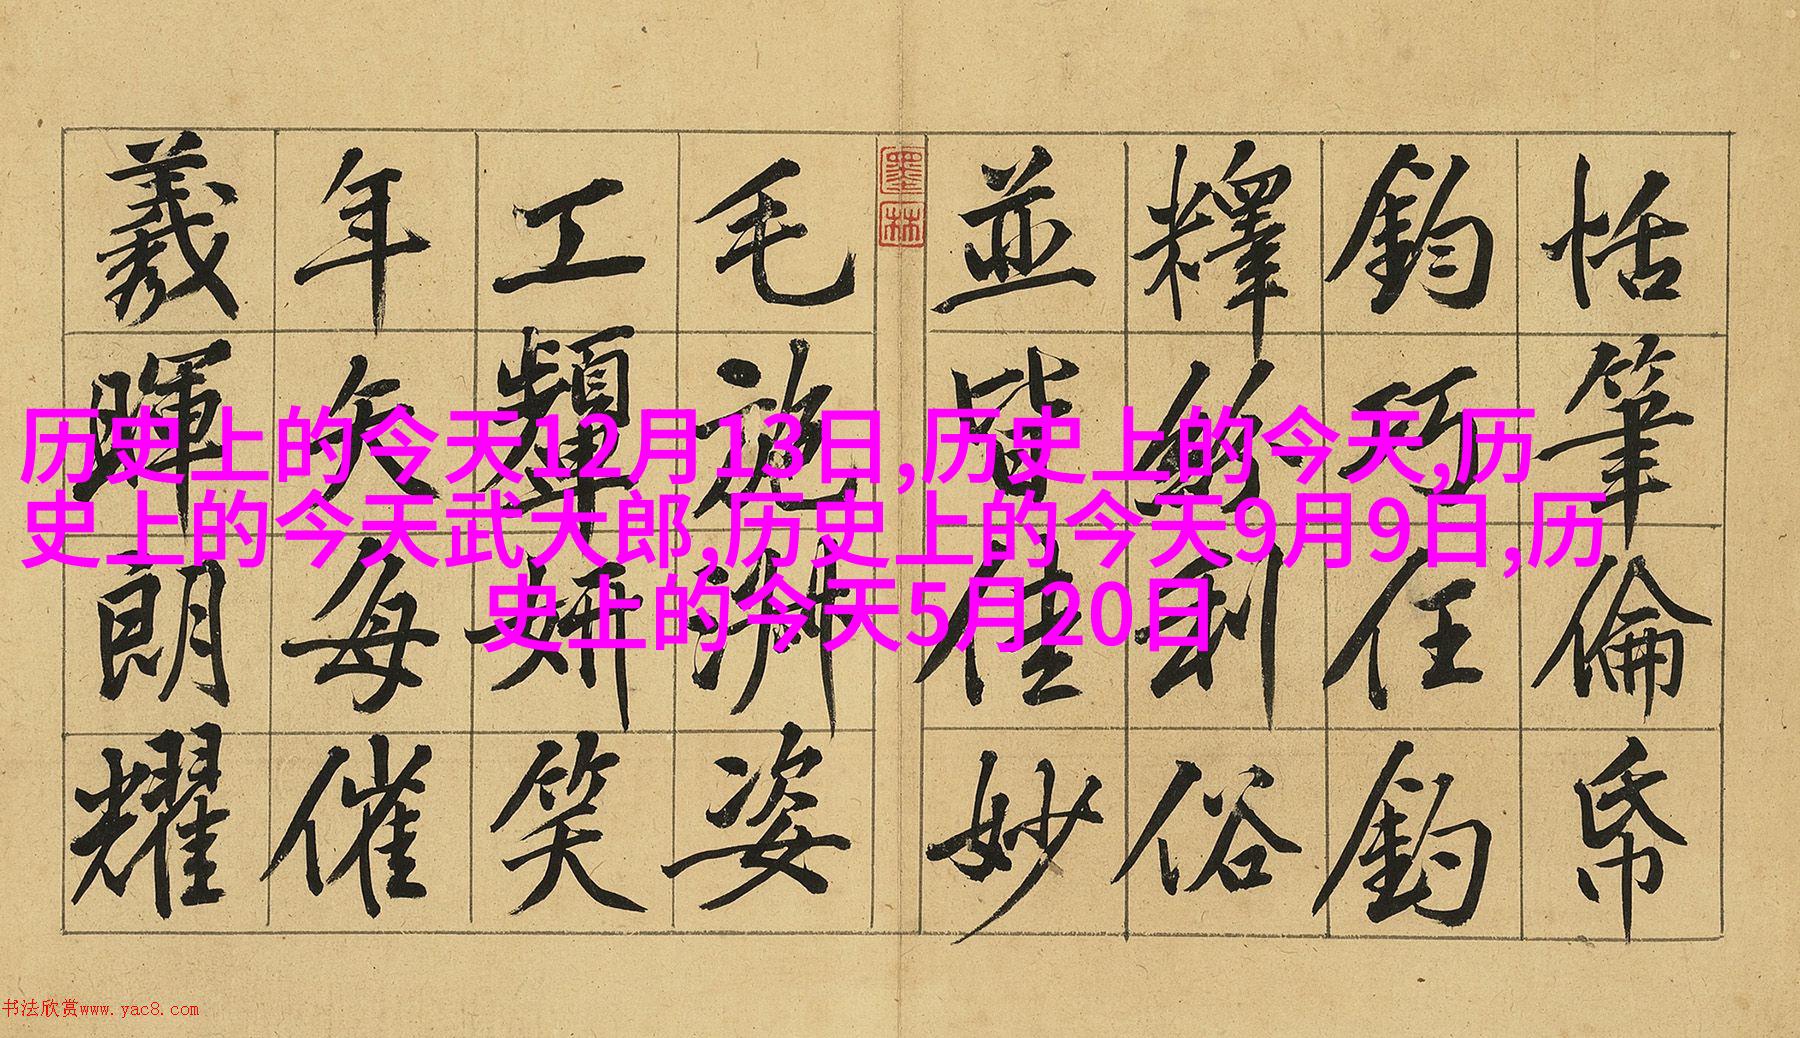 恬筆倫帋
鈞巧任釣
釋紛利俗
並皆佳妙
墨林
毛施淑姿
工顰妍笑
年矢每催
羲暉朗耀
历史上的今天12月13日,历史上的今天,历
史上的今天武大郎,历史上的今天9月9日,历
史上的今天5月20日
书法欣赏www.yac8.com